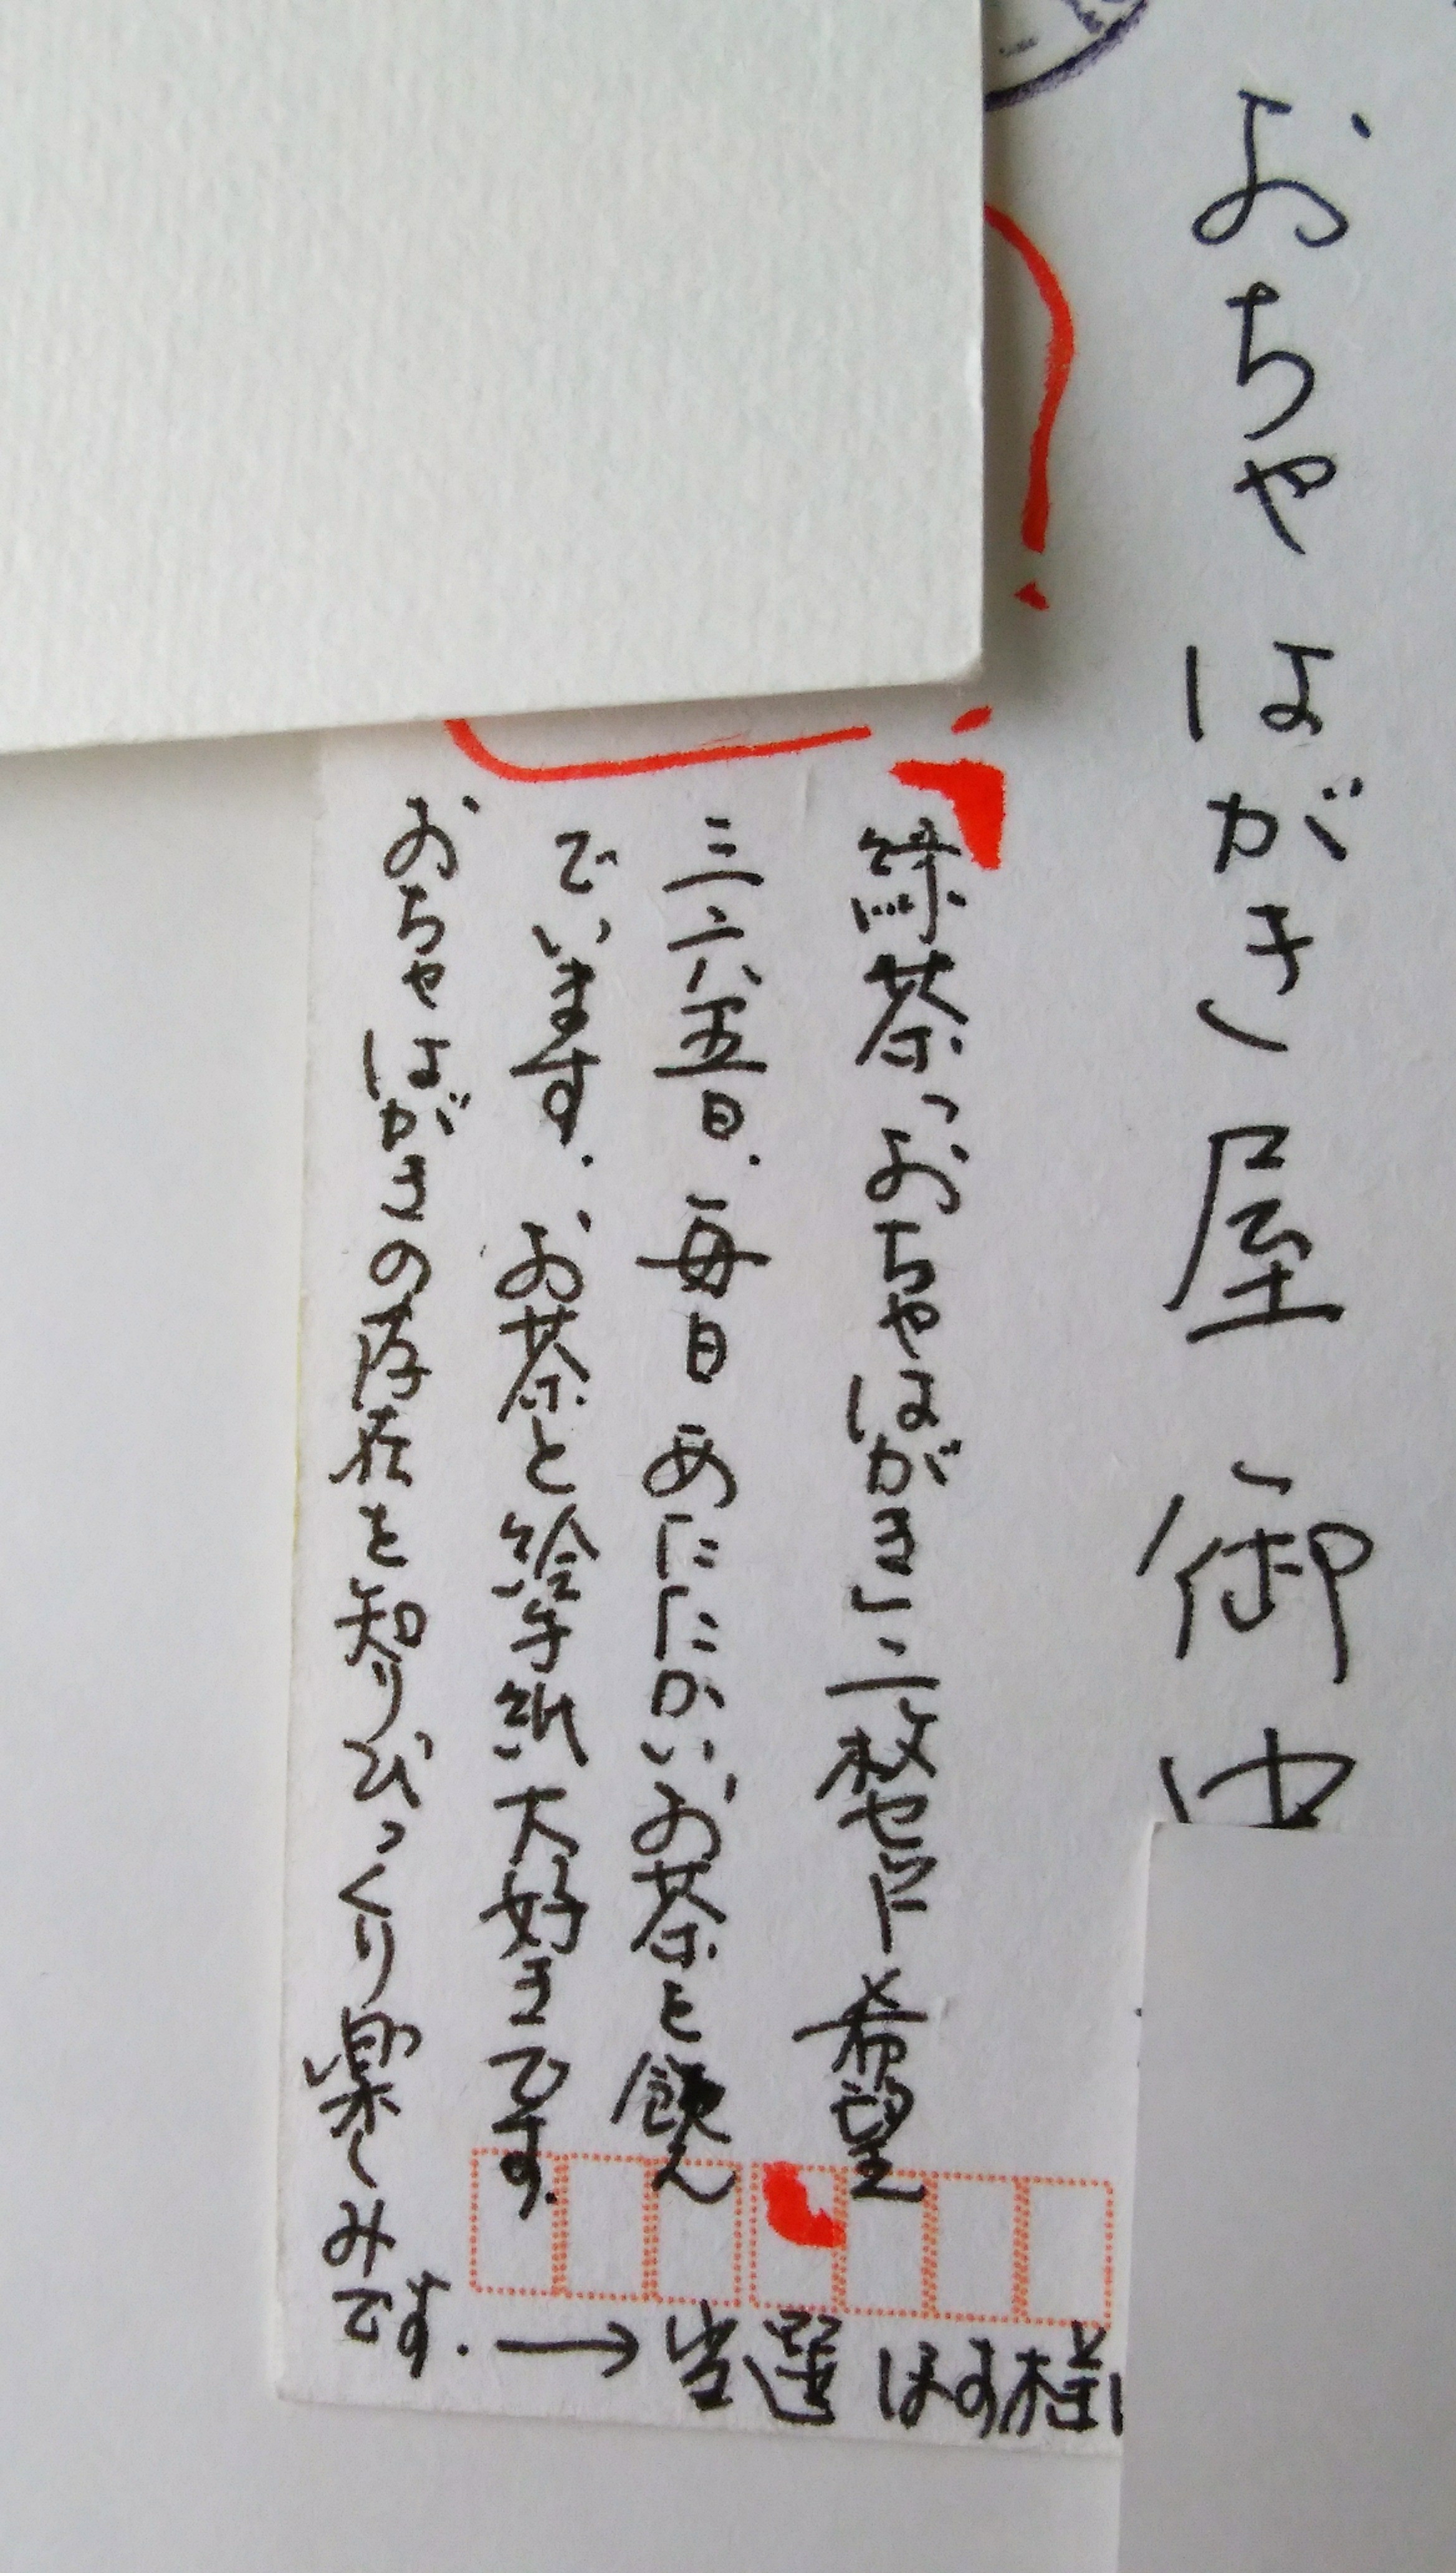 おちゃはがき屋 御中
緑茶「おちゃはがき」二枚セット希望
三六五日.毎日 あたたかいお茶を飲ん
でいます.お茶と絵手紙大好きです.
おちゃはがきの存在を知りびっくり楽しみです.
→当選